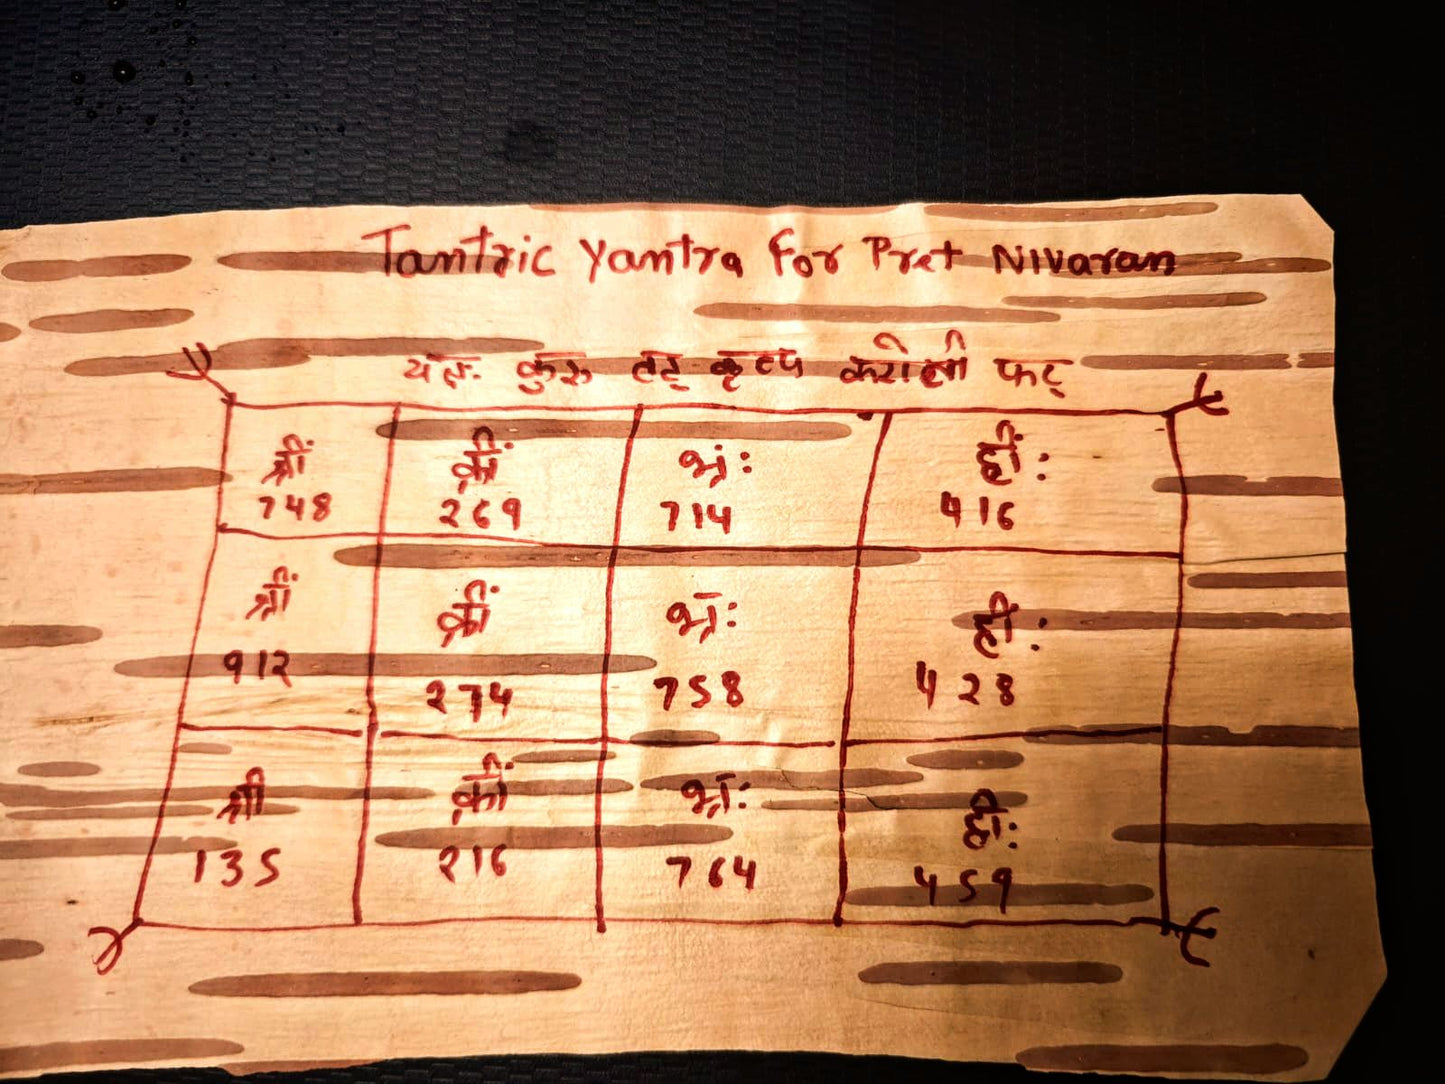 Tantric Yantra For Pret Nivaran
कुरु तद् कृत्य फट्
श्रीं क्रीं भ्रं: ह्रीं:
748 269 714 416
श्रीं क्रीं भ्रां: ह्रीं:
912 274 758 428
श्रीं क्रीं भ्रां: ह्रीं:
135 216 764 459